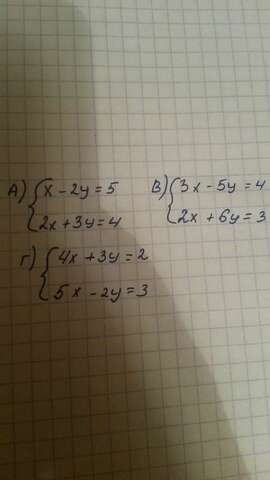 А) { x - 2y = 5
2x + 3y = 4
В) { 3x - 5y = 4
2x + 6y = 3
Г) { 4x + 3y = 2
5x - 2y = 3